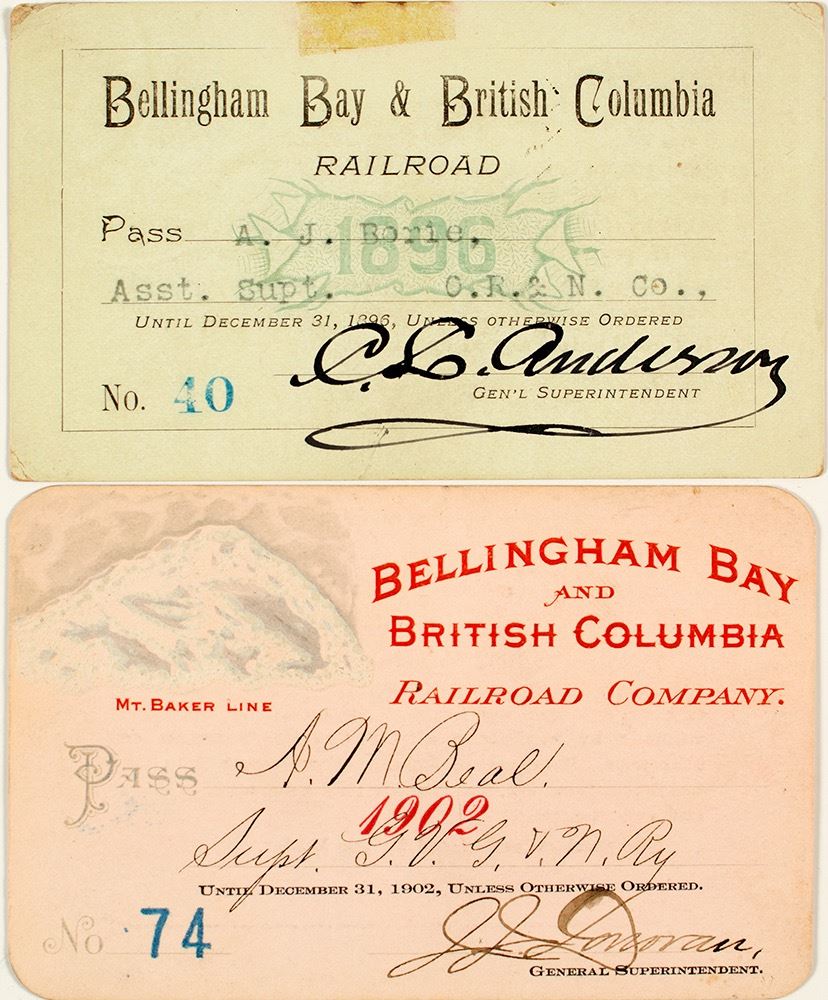 Bellingham Bay & British Columbia
RAILROAD
1896
Pass A. J. Borie,
Asst. Supt. O.R.& N. Co.,
UNTIL DECEMBER 31, 1896, UNLESS OTHERWISE ORDERED
C. L. Anderson
GEN'L SUPERINTENDENT
No. 40
BELLINGHAM BAY
AND
BRITISH COLUMBIA
RAILROAD COMPANY.
MT. BAKER LINE
PASS A. M. Beal.
1902
Supt. G. V. G. & N. Ry
UNTIL DECEMBER 31, 1902, UNLESS OTHERWISE ORDERED.
No 74
J. J. Donovan,
GENERAL SUPERINTENDENT.